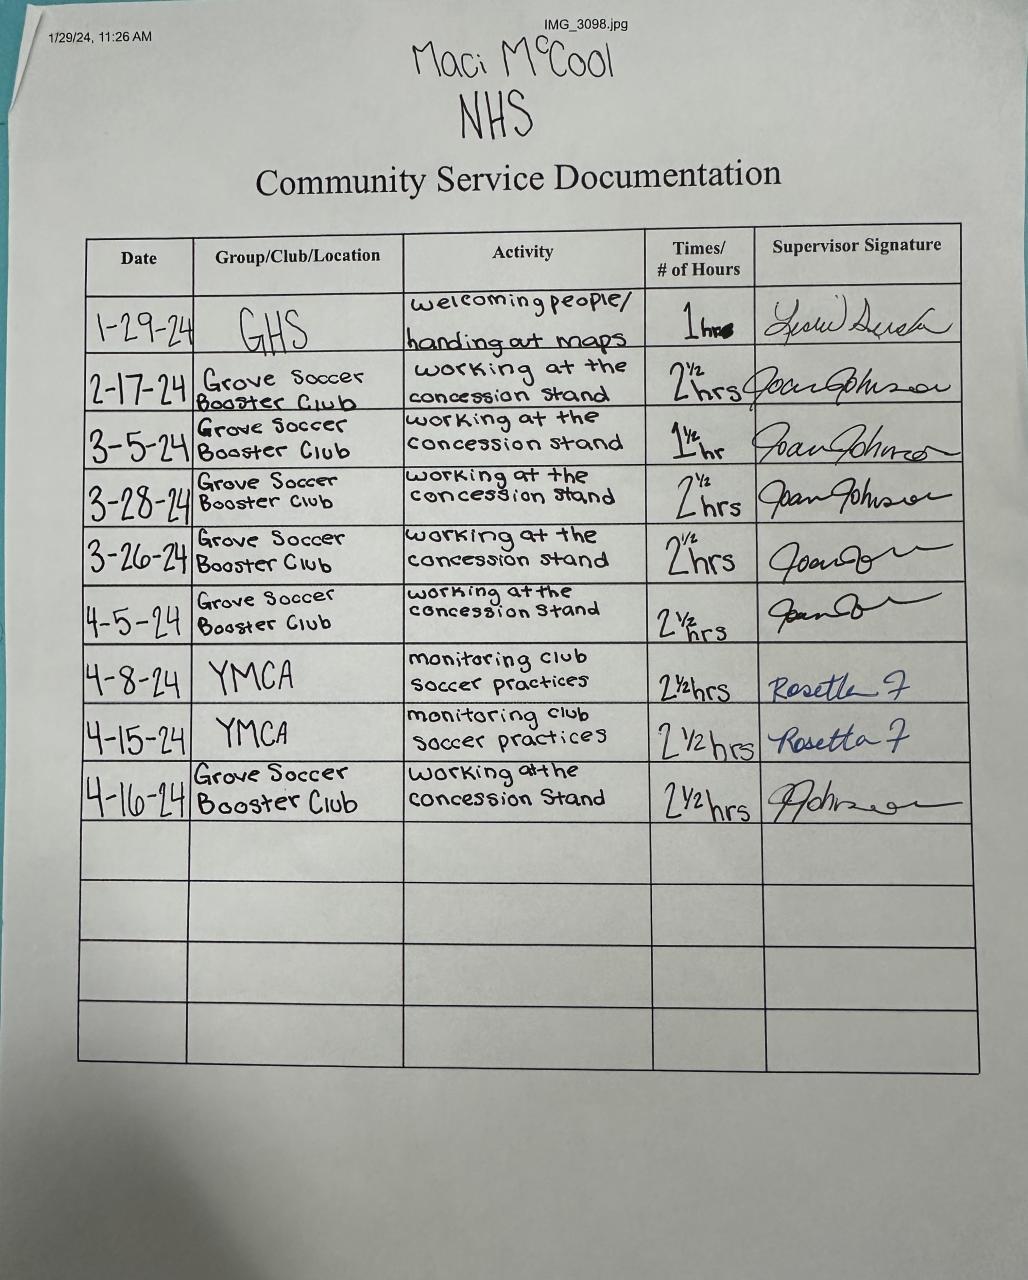 1/29/24, 11:26 AM IMG_3098.jpg
Maci McCool
NHS
Community Service Documentation
Date Group/Club/Location Activity Times/ # of Hours Supervisor Signature
1-29-24 GHS welcoming people/ 1 hr
handing out maps
2-17-24 Grove Soccer working at the 2 1/2 hrs Joan Johnson
Booster Club concession stand
3-5-24 Grove Soccer working at the 1 1/2 hr Joan Johnson
Booster Club concession stand
3-28-24 Grove Soccer working at the 2 1/2 hrs Joan Johnson
Booster Club concession stand
3-26-24 Grove Soccer working at the 2 1/2 hrs
Booster Club concession stand
4-5-24 Grove Soccer working at the 2 1/2 hrs
Booster Club concession stand
4-8-24 YMCA monitoring club 2 1/2 hrs Rosetta F
soccer practices
4-15-24 YMCA monitoring club 2 1/2 hrs Rosetta F
soccer practices
4-16-24 Grove Soccer working at the 2 1/2 hrs JJohnson
Booster Club concession Stand